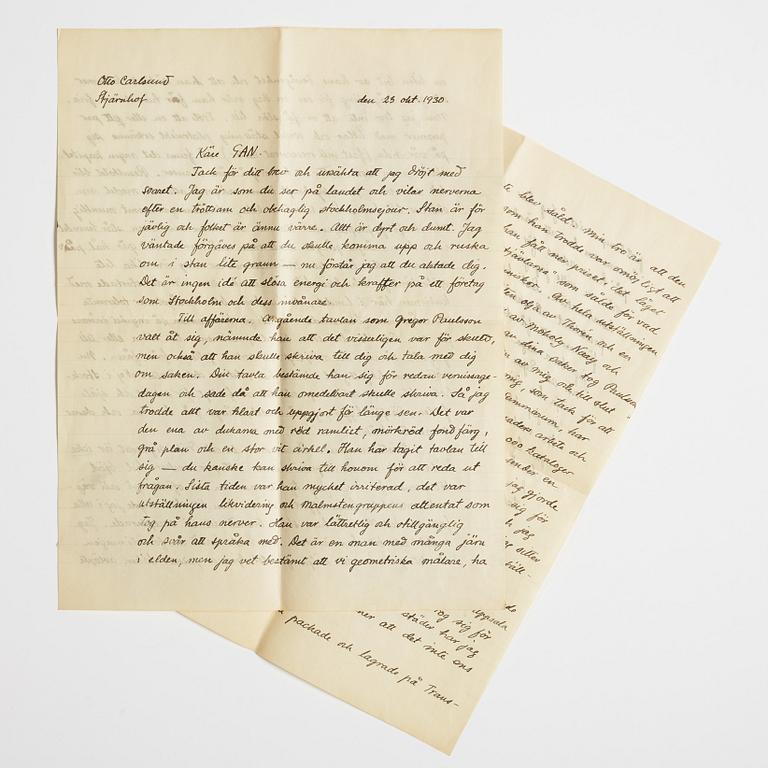 Otto Carlsund
Stjärnhof
den 25 okt. 1930.
Käre GAN.
Tack för ditt brev och ursäkta att jag dröjt med
svaret. Jag är som du ser på landet och vilar nerverna
efter en tröttsam och obehaglig stockholmsejour. Stan är för
jävlig och folket är ännu värre. Allt är dyrt och dumt. Jag
väntade förgäves på att du skulle komma upp och ruska
om i stan lite grann — nu förstår jag att du aktade dig.
Det är ingen idé att slösa energi och krafter på ett företag
som Stockholm och dess invånare.
Till affärerna. Angående tavlan som Gregor Paulsson
valt åt sig, nämnde han att det visserligen var för skuld,
men också att han skulle skriva till dig och tala med dig
om saken. Din tavla bestämde han sig för redan vernissage-
dagen och sade då att han omedelbart skulle skriva. Så jag
trodde allt var klart och uppgjort för länge sen. Det var
den ena av dukarna med röd ramlist, mörkröd fondfärg,
grå plan och en stor vit cirkel. Han har tagit tavlan till
sig — du kanske kan skriva till honom för att reda ut
frågan. Sista tiden var han mycket irriterad, det var
utställningens likvidering och Malmstengruppens attentat som
tog på hans nerver. Han var lättretlig och otillgänglig
och svår att språka med. Det är en man med många järn
i elden, men jag vet bestämt att vi geometriska målare, ha
blev såld. Min tro är att den
som han trodde var omöjligt att
han fått mer priset. det låget
som sålde för vad
Av hela utställningen
av Thorén och en
av Moholy Nagy och
dina saker tog Paulsson
av mig och till slut
mig, som tack för att
sommaren, har
arbete och
000 kataloger
en
jag gjorde
sig för
jag
sitter
ställ-
uppsala
tog sig för
städer har jag
att det inte ens
packade och lagrade på Trans-